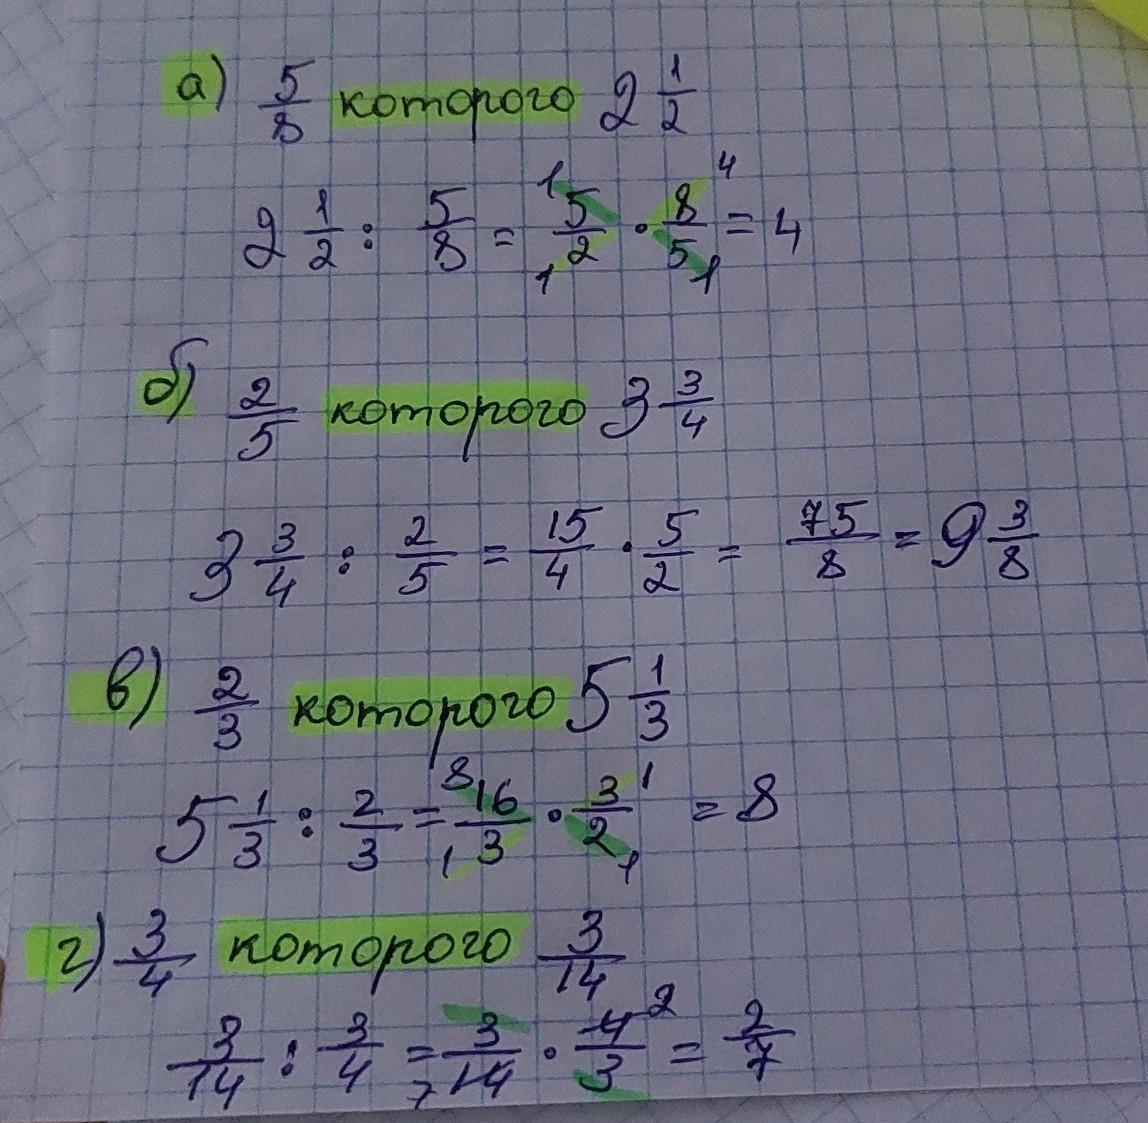 а) 5/8 которого 2 1/2
2 1/2 : 5/8 = 5/2 · 8/5 = 4
б) 2/5 которого 3 3/4
3 3/4 : 2/5 = 15/4 · 5/2 = 75/8 = 9 3/8
в) 2/3 которого 5 1/3
5 1/3 : 2/3 = 16/3 · 3/2 = 8
г) 3/4 которого 3/14
3/14 : 3/4 = 3/14 · 4/3 = 2/7